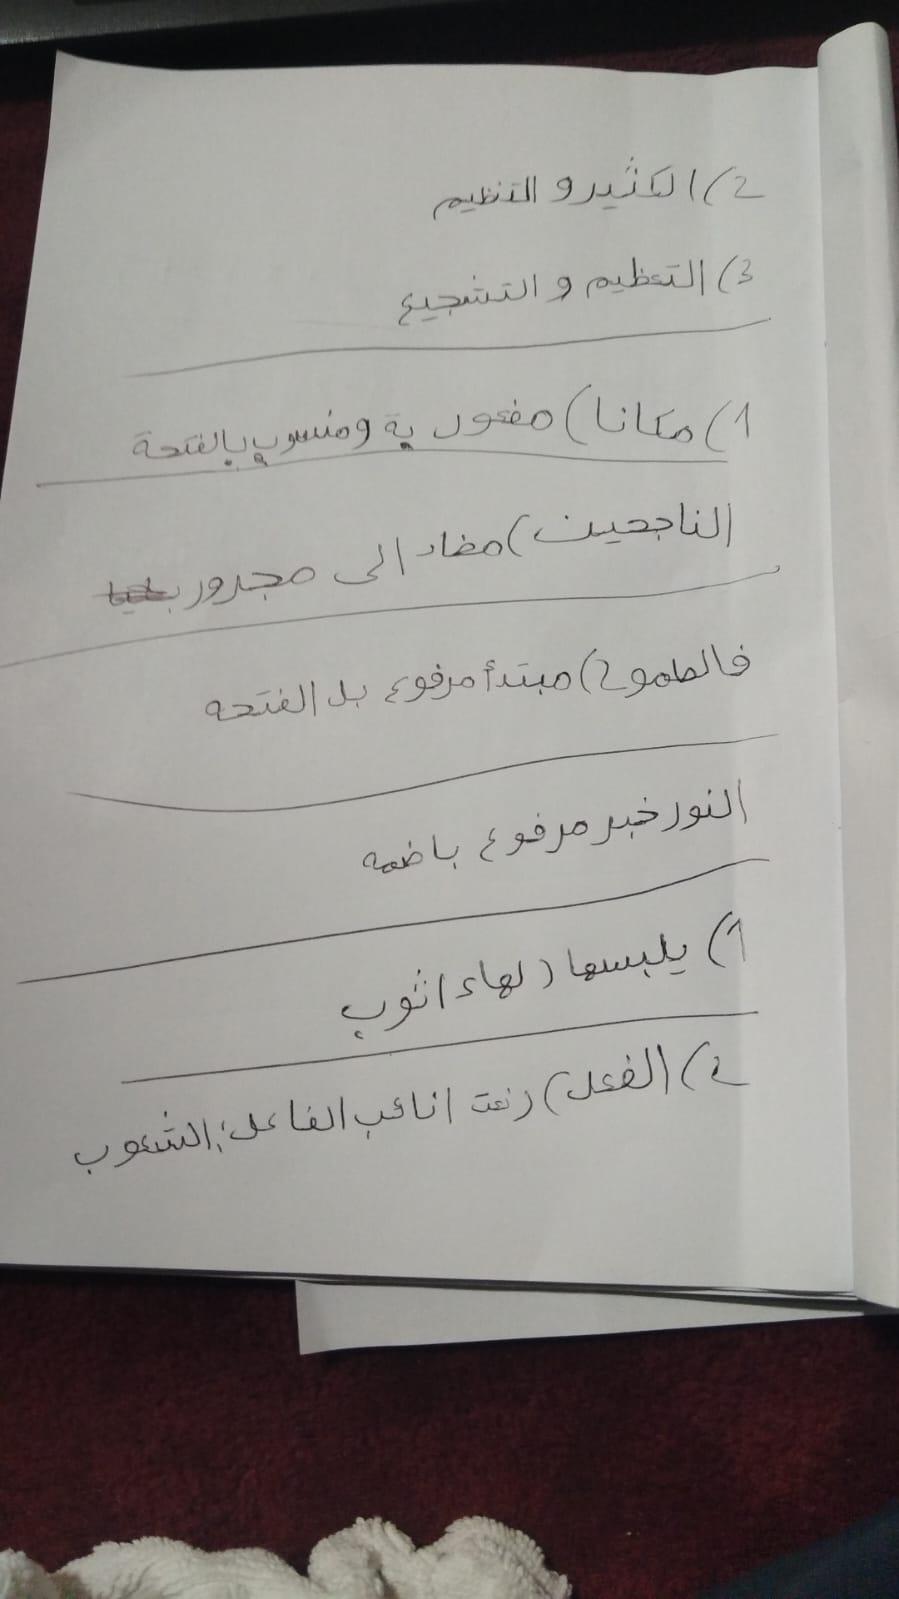 2) الكثير و التنظيم
3) التعظيم و التشجيع
1) مكانا) مفعول بة ومنسوب بالفتحة
الناجحين) مضاد الى مجرور
فالطموح) مبتدأ مرفوع بل الفتحه
النور خبر مرفوع باضمه
1) يلبسها ( لهاء اثوب
2) الفعل) انائب الفاعل: الشعوب